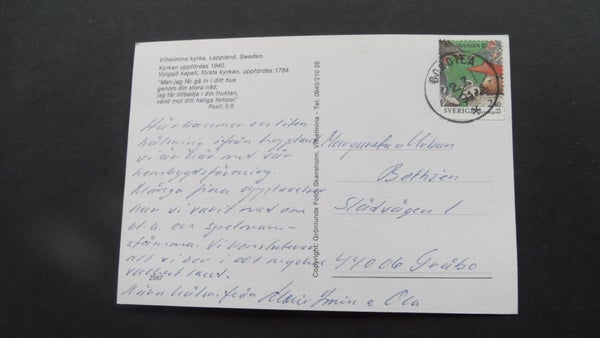 Vilhelmina kyrka, Lappland, Sweden.
Kyrkan uppfördes 1840.
Volgsjö kapell, första kyrkan, uppfördes 1784.
"Men jag får gå in i ditt hus
genom din stora nåd;
jag får tillbedja i din fruktan,
vänd mot ditt heliga tempel"
Psalt. 5:8
Här kommer en liten
hälsning ifrån Lappland
vi är här med vår
hembygdsförening.
Många fina upplevelser
har vi varit med om
bl.a. en spelmans-
stämma. Vi konstaterar
att vi bor i ett mycket
vackert land.
2567
hälsn. från Marie o Ola
Copyright: Grönlunds Foto, Skansholm, Vilhelmina - Tel. 0940/210 26
SKANSEN
DOROTEA
SVERIGE 2.40
Margareta o Urban
Slädvägen 1
44006 Gråbo